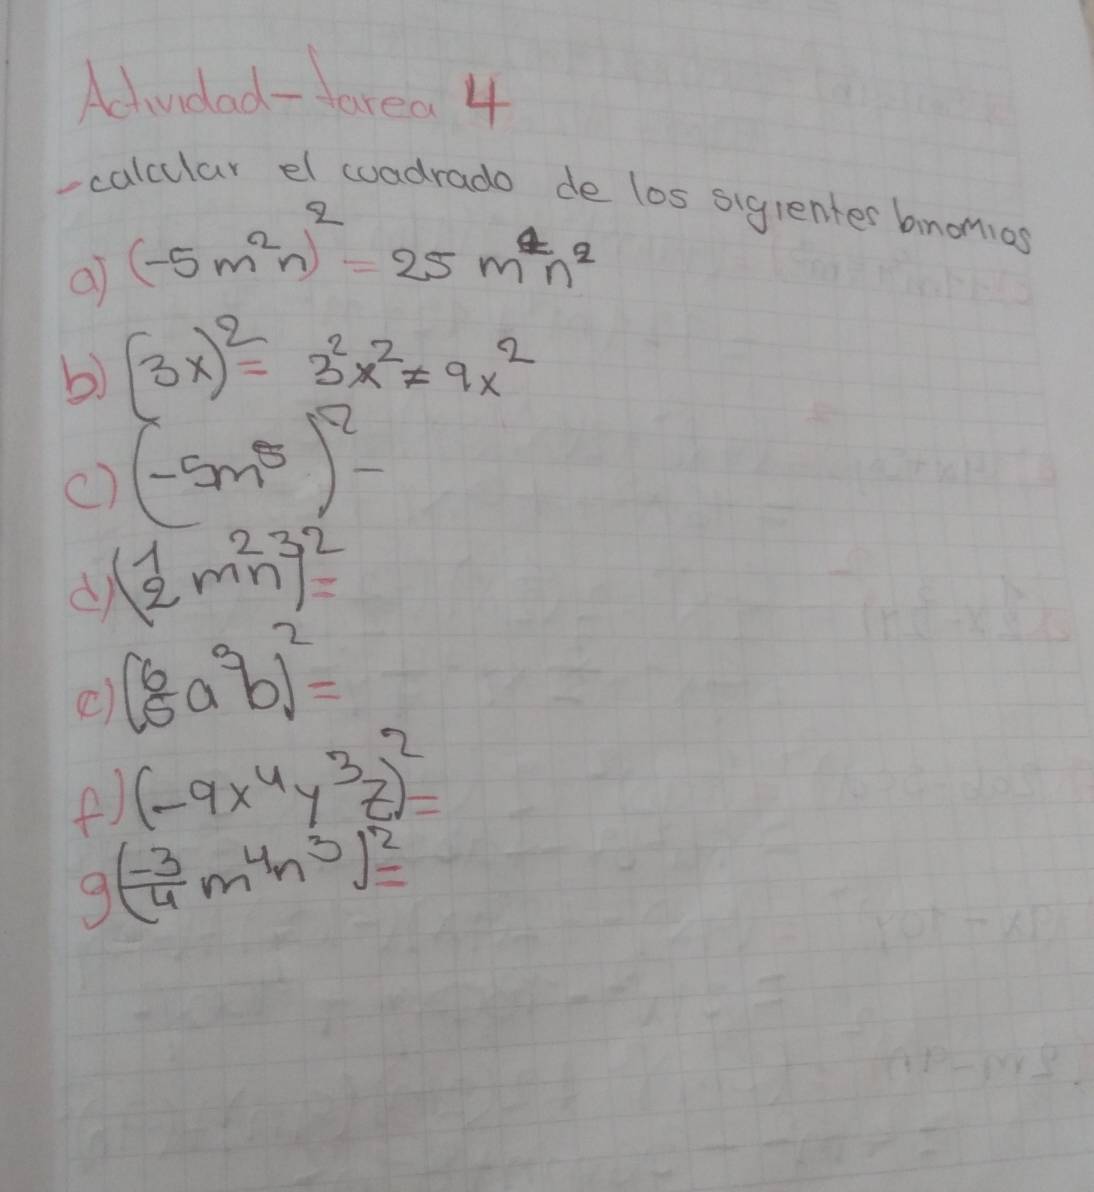 Actividad-tarea 4
-calcular el cuadrado de los sigientes binomios
a) (-5m²n)² = 25 m⁴n²
b) (3x)² = 3²x² = 9x²
c) (-5m⁵)² -
d) (1/2 m²n³)² =
e) (6/5 a³b)² =
f) (-9x⁴y³z)² =
g (-3/4 m⁴n³)² =